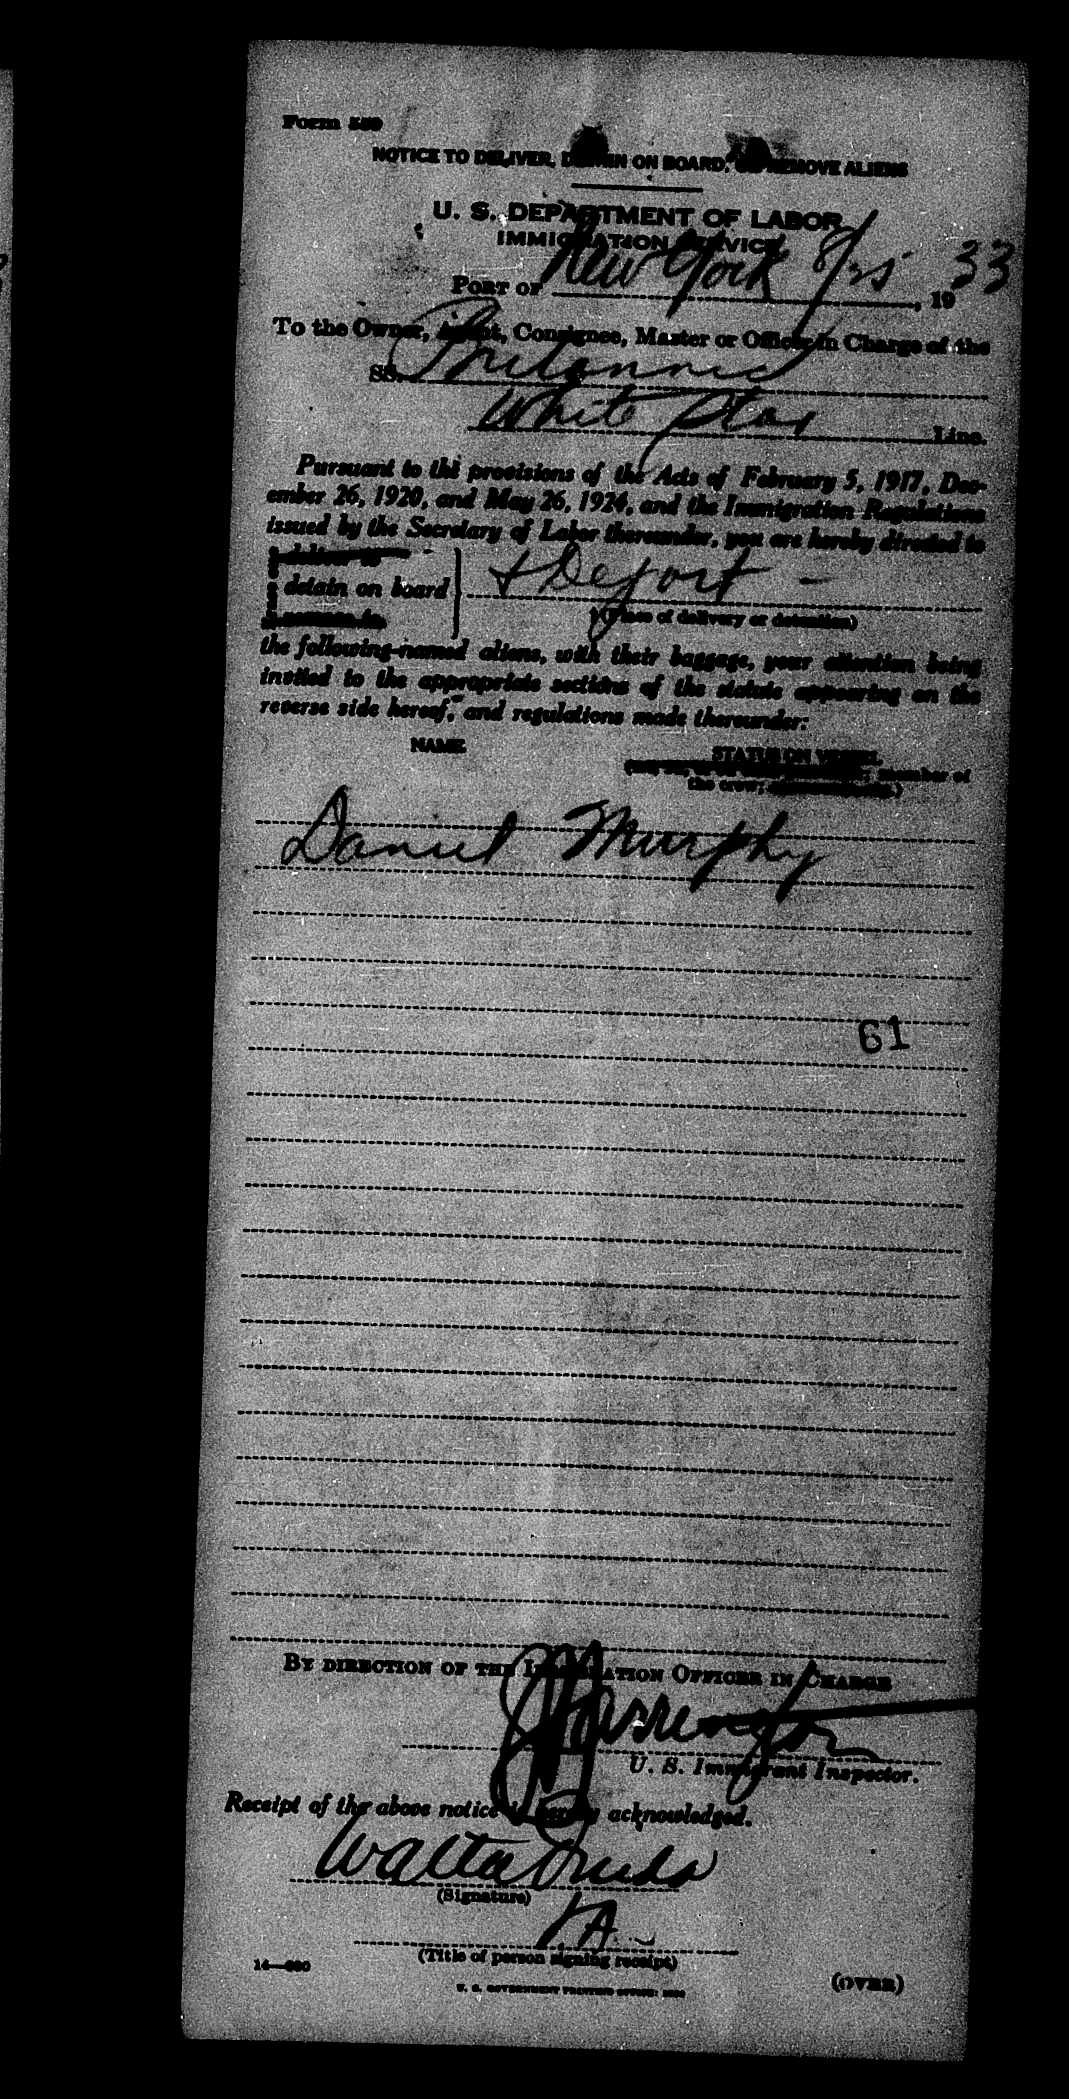 Form 559
NOTICE TO DELIVER, DETAIN ON BOARD, OR REMOVE ALIENS
U. S. DEPARTMENT OF LABOR
IMMIGRATION SERVICE
PORT OF New York 8/25, 1933
To the Owner, Agent, Consignee, Master or Officer in Charge of the
SS. Britannic
White Star Line.
Pursuant to the provisions of the Acts of February 5, 1917, Dec-
ember 26, 1920, and May 26, 1924, and the Immigration Regulations
issued by the Secretary of Labor thereunder, you are hereby directed to
deliver to
detain on board + Deport -
remove to
(Place of delivery or detention)
the following-named aliens, with their baggage, your attention being
invited to the appropriate sections of the statute appearing on the
reverse side hereof, and regulations made thereunder:
NAME STATUS ON VESSEL
member of
the crew;
Daniel Murphy
61
BY DIRECTION OF THE IMMIGRATION OFFICER IN CHARGE
U. S. Immigrant Inspector.
Receipt of the above notice is hereby acknowledged.
(Signature)
(Title of person signing receipt)
(OVER)